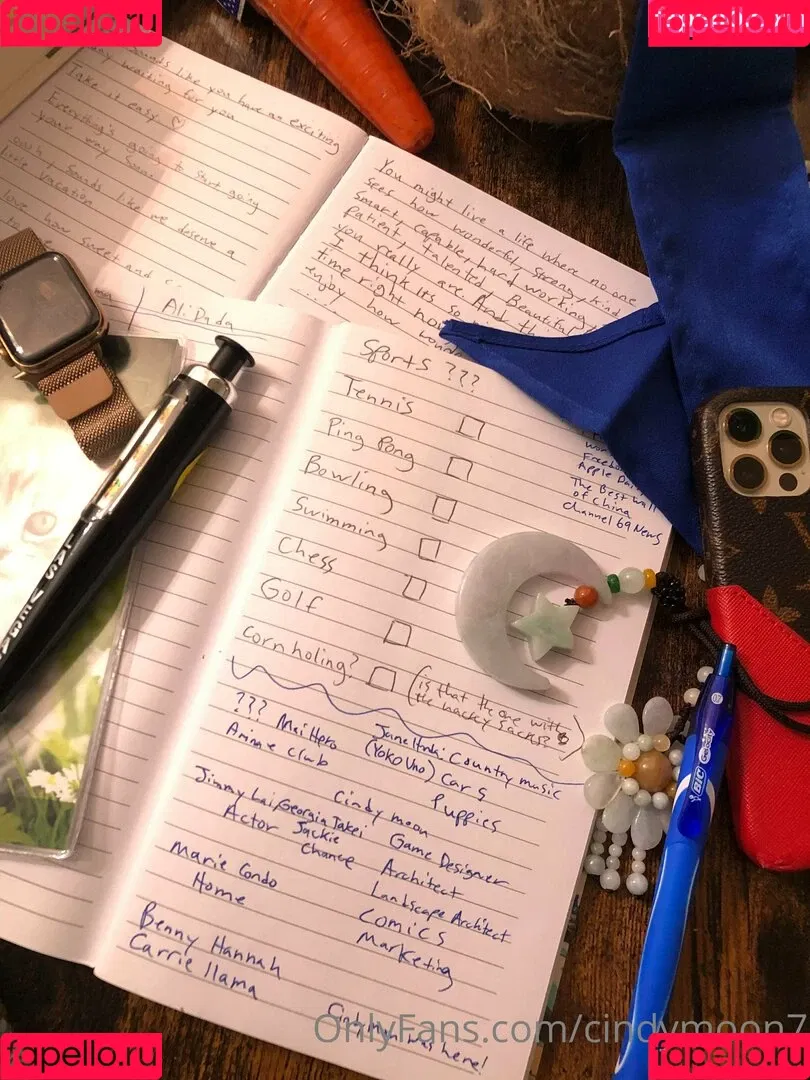 fapello.ru
fapello.ru
Sounds like you have an exciting
day waiting for you
Take it easy ♡
Everything's going to start going
your way soon
Sounds like we deserve a
little vacation
love how sweet and
You might live a life where no one
sees how wonderful, strong, kind
smart, capable, hard working,
patient, talented, Beautiful
you really are And
I think its so
time right now
enjoy how
Ali Dada
Sports ???
Tennis
Ping Pong
Bowling
Swimming
Chess
Golf
cornholing?
(is that the one with
the hacky sacks?
Apple
The Best Wall
of China
Channel 69 News
??? Mei Hero
Anime club
(YOKO Uno)
Country music
Cars
Puppies
Cindy moon
Jimmy Lai, Georgia Takei
Actor
Jackie
Chance
Game Designer
Architect
Landscape Architect
Marie Condo
Home
Comics
Marketing
Benny Hannah
Carrie llama
was here!
BIC
OnlyFans.com/cindymoon7
fapello.ru
fapello.ru